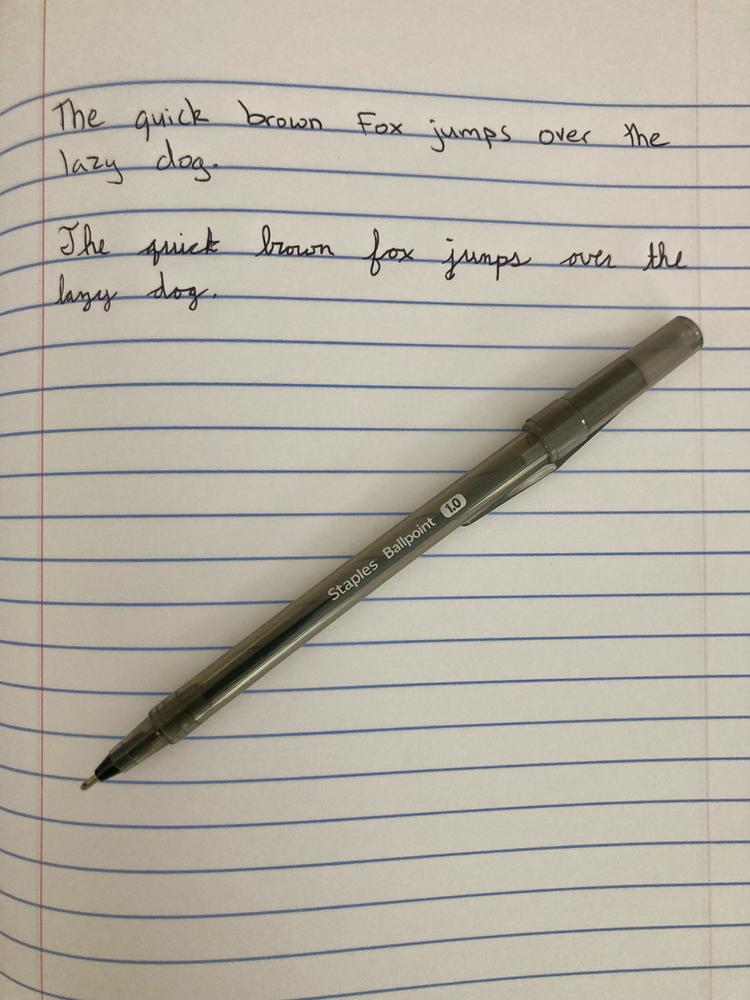 The quick brown Fox jumps over the
lazy dog.
The quick brown fox jumps over the
lazy dog.
Staples Ballpoint 1.0